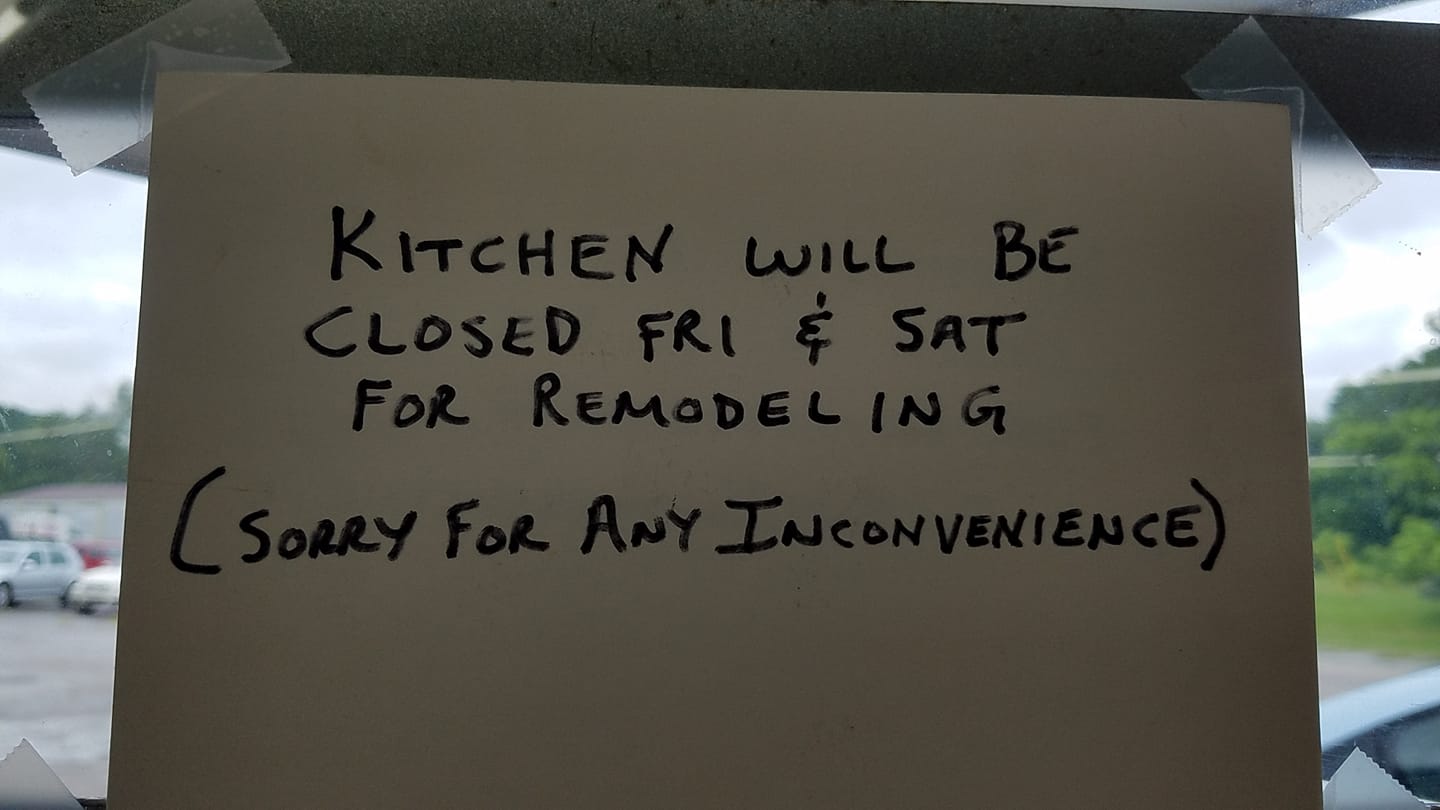 KITCHEN WILL BE
CLOSED FRI & SAT
FOR REMODELING
(SORRY FOR ANY INCONVENIENCE)